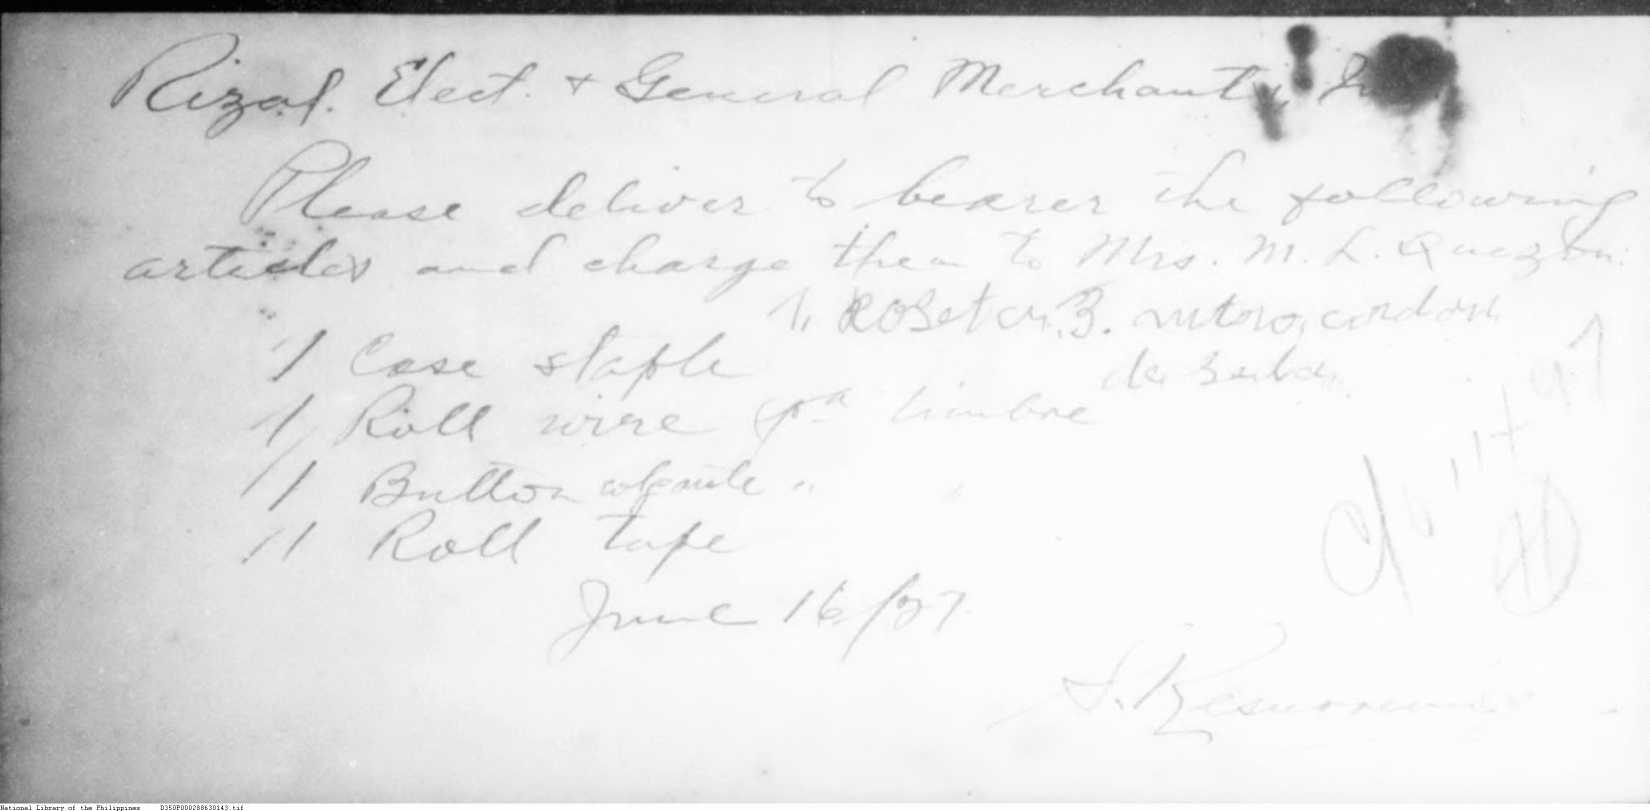 Rizal. Elect. & General Merchants, In
Please deliver to bearer the following
articles and charge them to Mrs. M. L. Quezon.
1 Roseton. 3. metros cordon
de seda
1 Case staple
1 Roll wire pa timbre
1 Button colgante "
1 Roll tape
June 16/37
National Library of the Philippines D350P000288630143.tif